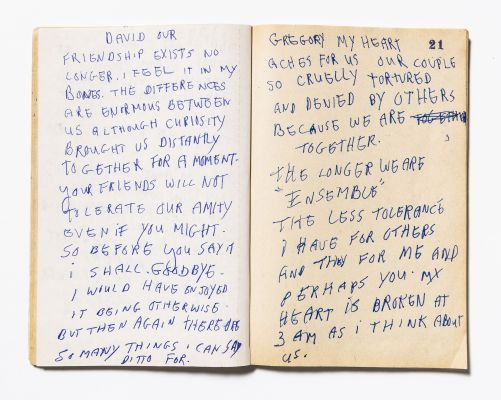 DAVID OUR
FRIENDSHIP EXISTS NO
LONGER. I FEEL IT IN MY
BONES. THE DIFFERENCES
ARE ENORMOUS BETWEEN
US ALTHOUGH CURIOSITY
BROUGHT US DISTANTLY
TOGETHER FOR A MOMENT.
YOUR FRIENDS WILL NOT
TOLERATE OUR AMITY
EVEN IF YOU MIGHT.
SO BEFORE YOU SAY IT
i SHALL. GOODBYE.
I WOULD HAVE ENJOYED
IT BEING OTHERWISE.
BUT THEN AGAIN THERE ARE
SO MANY THINGS i CAN SAY
DITTO FOR.
21
GREGORY MY HEART
ACHES FOR US OUR COUPLE
SO CRUELLY TORTURED
AND DENIED BY OTHERS
BECAUSE WE ARE TOGETHER
TOGETHER.
THE LONGER WE ARE
"ENSEMBLE"
THE LESS TOLERANCE
I HAVE FOR OTHERS
AND THEY FOR ME AND
PERHAPS YOU. MY
HEART IS BROKEN AT
3 AM AS i THINK ABOUT
US.